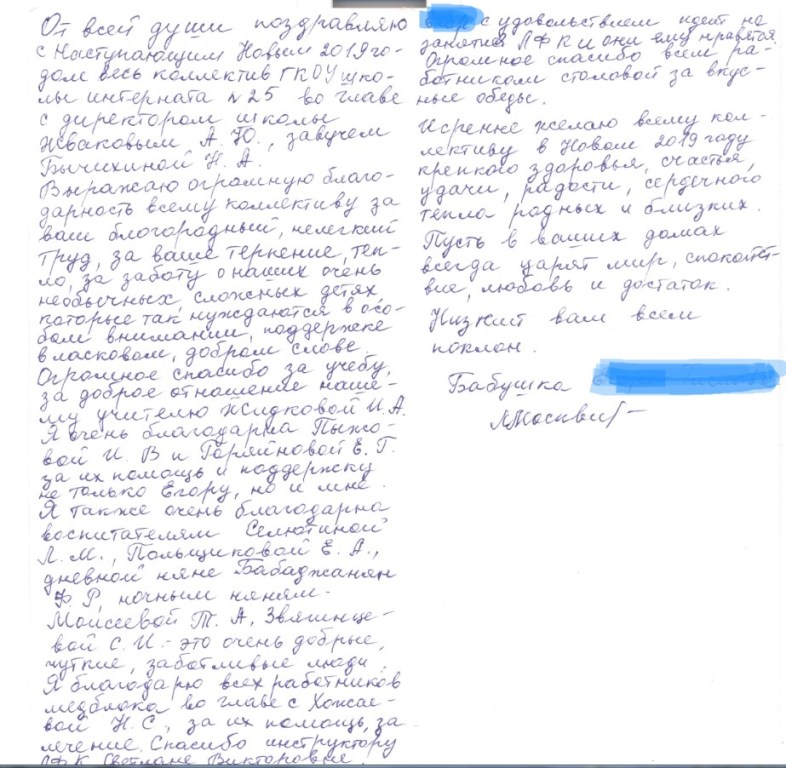 От всей души поздравляю
с Наступающим Новым 2019 го-
дом весь коллектив ГКОУ шко-
лы интерната №25 во главе
с директором школы
Жваковым А.Ю., завучем
Бычихиной Н.А.
Выражаю огромную благо-
дарность всему коллективу за
ваш благородный, нелегкий
труд, за ваше терпение, теп-
ло, за заботу о наших очень
необычных, сложных детях,
которые так нуждаются в осо-
бом внимании, поддержке
в ласковом, добром слове.
Огромное спасибо за учебу,
за доброе отношение наше-
му учителю Жидковой И.А.
Я очень благодарна Пыжо-
вой И.В и Горяйновой Е.Г.
за их помощь и поддержку
не только Егору, но и мне.
Я также очень благодарна
воспитателям Селютиной
Л.М., Польщиковой Е.А.,
дневной няне Бабаджанян
Ф Р, ночным няням -
Моисеевой Т.А, Звягинце-
вой С.И. - это очень добрые,
чуткие, заботливые люди.
Я благодарю всех работников
медблока во главе с Хожае-
вой Н.С., за их помощь, за
лечение. Спасибо инструктору
ЛФК Светлане Викторовне.
с удовольствием идет на
занятия ЛФК и они ему нравятся.
Огромное спасибо всем ра-
ботникам столовой за вкус-
ные обеды.
Искренне желаю всему кол-
лективу в Новом 2019 году
крепкого здоровья, счастья,
удачи, радости, сердечного
тепла родных и близких.
Пусть в ваших домах
всегда царят мир, спокойст-
вие, любовь и достаток.
Низкий вам всем
поклон.
Бабушка